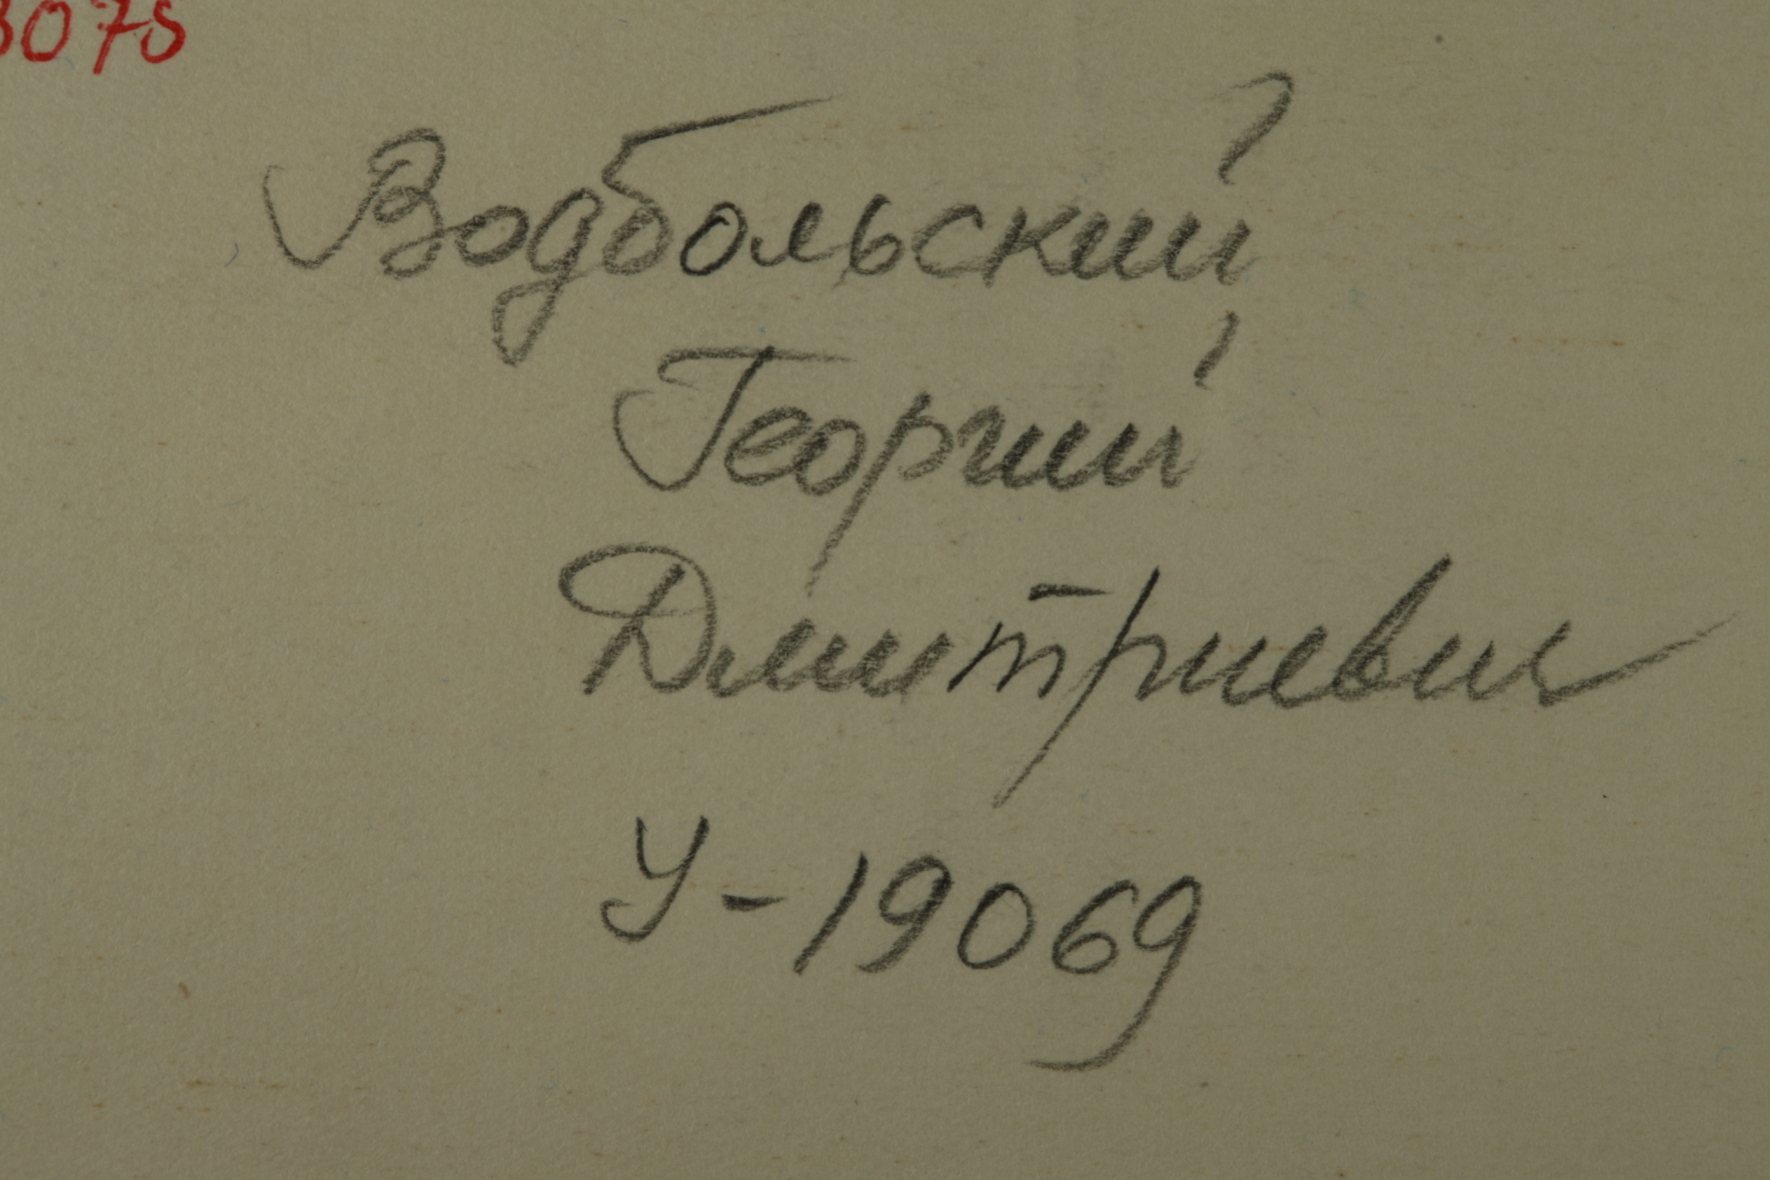 Водбольский
Георгий
Дмитриевич
У-19069